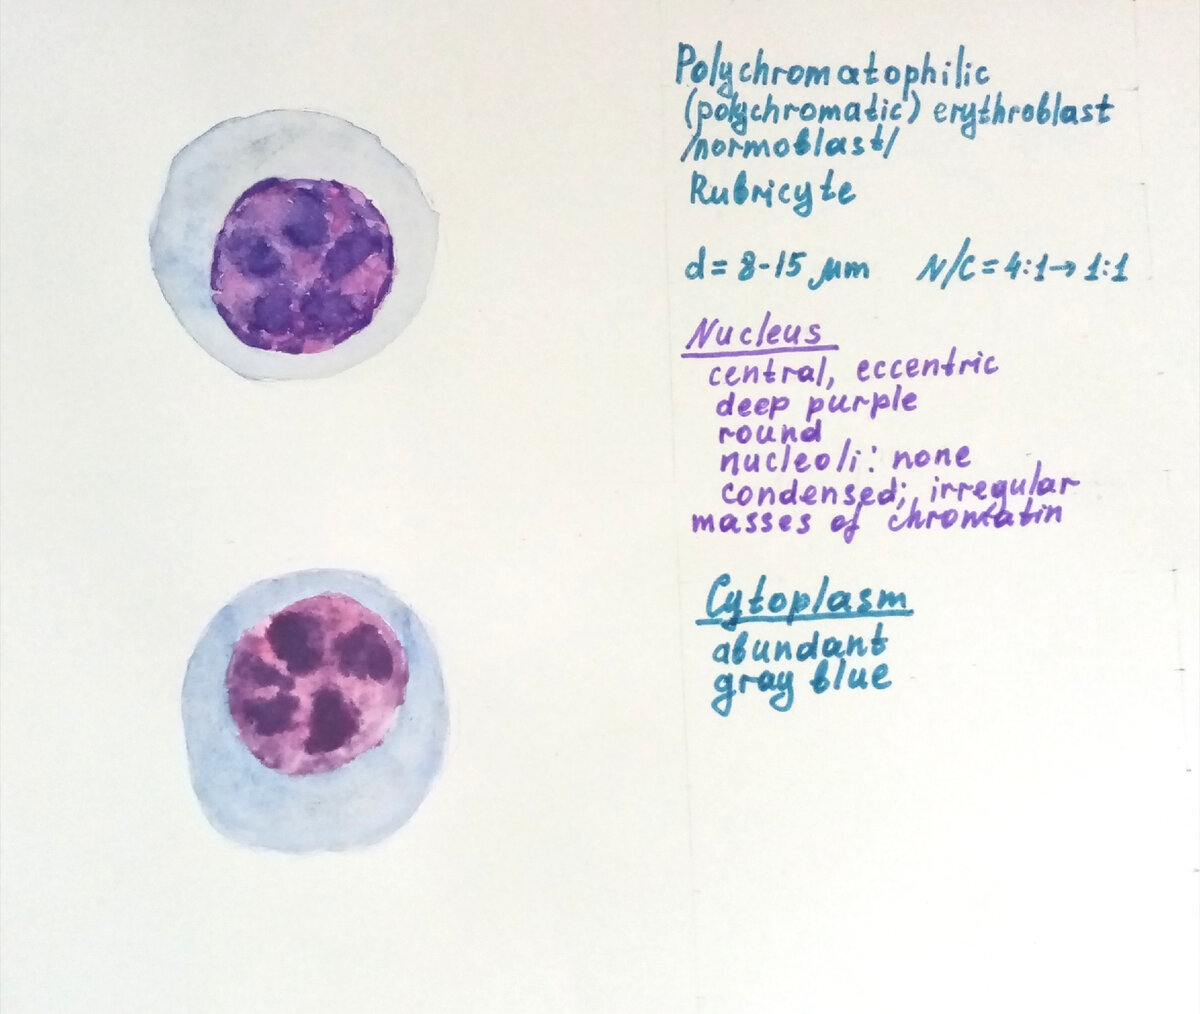 Polychromatophilic
(polychromatic) erythroblast
/normoblast/
Rubricyte
d = 8-15 µm N/C = 4:1→ 1:1
Nucleus
central, eccentric
deep purple
round
nucleoli: none
condensed; irregular
masses of chromatin
Cytoplasm
abundant
gray blue